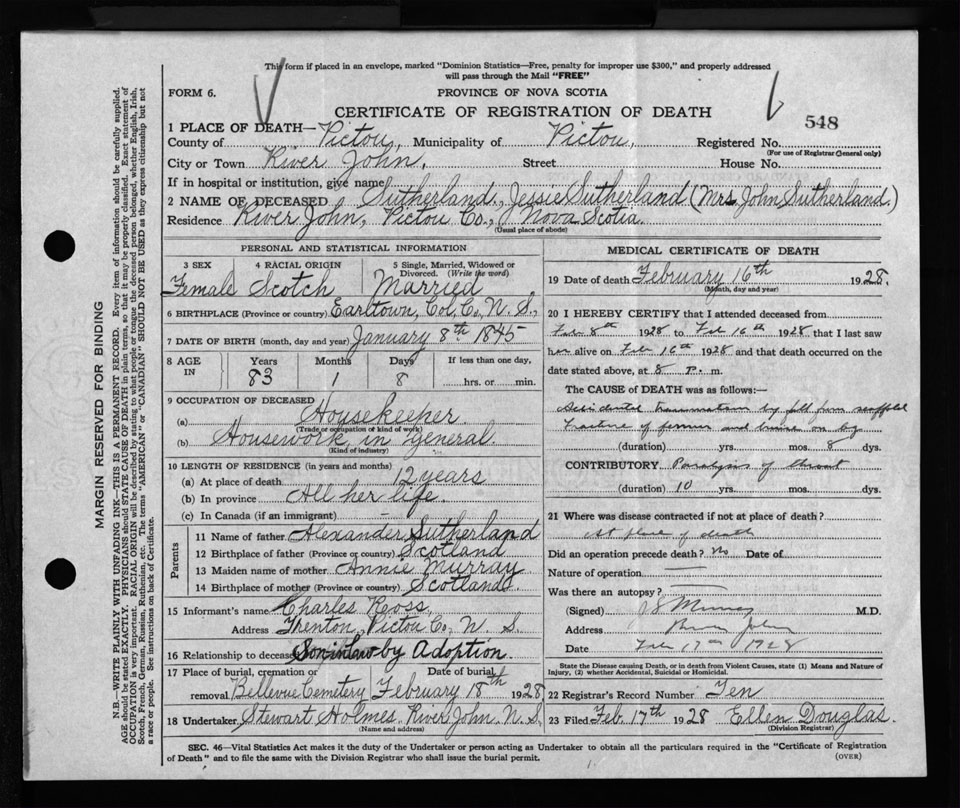 This form if placed in an envelope, marked "Dominion Statistics—Free, penalty for improper use $300," and properly addressed
will pass through the Mail "FREE"
FORM 6.
PROVINCE OF NOVA SCOTIA
CERTIFICATE OF REGISTRATION OF DEATH
548
1 PLACE OF DEATH—
County of Pictou, Municipality of Pictou, Registered No.
(For use of Registrar General only)
City or Town River John. Street House No.
If in hospital or institution, give name
2 NAME OF DECEASED Sutherland, Jessie Sutherland (Mrs John Sutherland.)
Residence River John, Pictou Co., Nova Scotia.
(Usual place of abode)
PERSONAL AND STATISTICAL INFORMATION
3 SEX 4 RACIAL ORIGIN 5 Single, Married, Widowed or Divorced. (Write the word)
Female Scotch Married
6 BIRTHPLACE (Province or country) Earltown, Col. Co., N. S.,
7 DATE OF BIRTH (month, day and year) January 8th 1845
8 AGE IN Years Months Days If less than one day,
83 1 8 hrs. or min.
9 OCCUPATION OF DECEASED
(a) Housekeeper
(Trade or occupation or kind of work)
(b) Housework in general.
(Kind of industry)
10 LENGTH OF RESIDENCE (in years and months)
(a) At place of death 12 years
(b) In province All her life.
(c) In Canada (if an immigrant)
Parents
11 Name of father Alexander Sutherland
12 Birthplace of father (Province or country) Scotland
13 Maiden name of mother Annie Murray
14 Birthplace of mother (Province or country) Scotland
15 Informant's name Charles Ross,
Address Trenton, Pictou Co., N. S.
16 Relationship to deceased Son in law by Adoption.
17 Place of burial, cremation or removal Date of burial
Bellevue Cemetery February 18th 1928
18 Undertaker Stewart Holmes. River John. N. S.
(Name and address)
MEDICAL CERTIFICATE OF DEATH
19 Date of death February 16th 1928.
(Month, day and year)
20 I HEREBY CERTIFY that I attended deceased from
Feb 8th 1928 to Feb 16th 1928 that I last saw
her alive on Feb 16th 1928 and that death occurred on the
date stated above, at 8 P. m.
The CAUSE of DEATH was as follows:—
Accidental traumatism by fall from scaffold
Fracture of femur and bruise on
(duration) yrs. mos. 8 dys.
CONTRIBUTORY Paralysis of throat
(duration) 10 yrs. mos. dys.
21 Where was disease contracted if not at place of death?
At place of death
Did an operation precede death? No Date of
Nature of operation —
Was there an autopsy? —
(Signed) Murray M.D.
Address River John
Date Feb 17th 1928
State the Disease causing Death, or in death from Violent Causes, state (1) Means and Nature of
Injury, (2) whether Accidental, Suicidal or Homicidal.
22 Registrar's Record Number Ten
23 Filed Feb. 17th 1928 Ellen Douglas.
(Division Registrar)
SEC. 46—Vital Statistics Act makes it the duty of the Undertaker or person acting as Undertaker to obtain all the particulars required in the "Certificate of Registration
of Death" and to file the same with the Division Registrar who shall issue the burial permit.
(OVER)
MARGIN RESERVED FOR BINDING
N.B.—WRITE PLAINLY WITH UNFADING INK—THIS IS A PERMANENT RECORD. Every item of information should be carefully supplied.
AGE should be stated EXACTLY. PHYSICIANS should STATE CAUSE OF DEATH in plain terms, so that it may be properly classified. Exact statement of
OCCUPATION is very important. RACIAL ORIGIN will be described by stating to what people or tongue the deceased person belonged, whether English, Irish,
Scotch, French, German, Russian, Ruthenian, etc. The terms "AMERICAN" or "CANADIAN" SHOULD NOT BE USED as they express citizenship but not
a race or people. See instructions on back of Certificate.